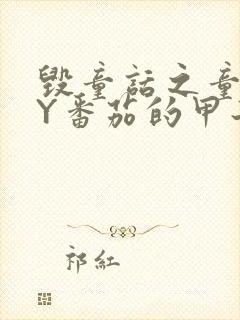 毁童话之童
Y番茄的甲
祁红